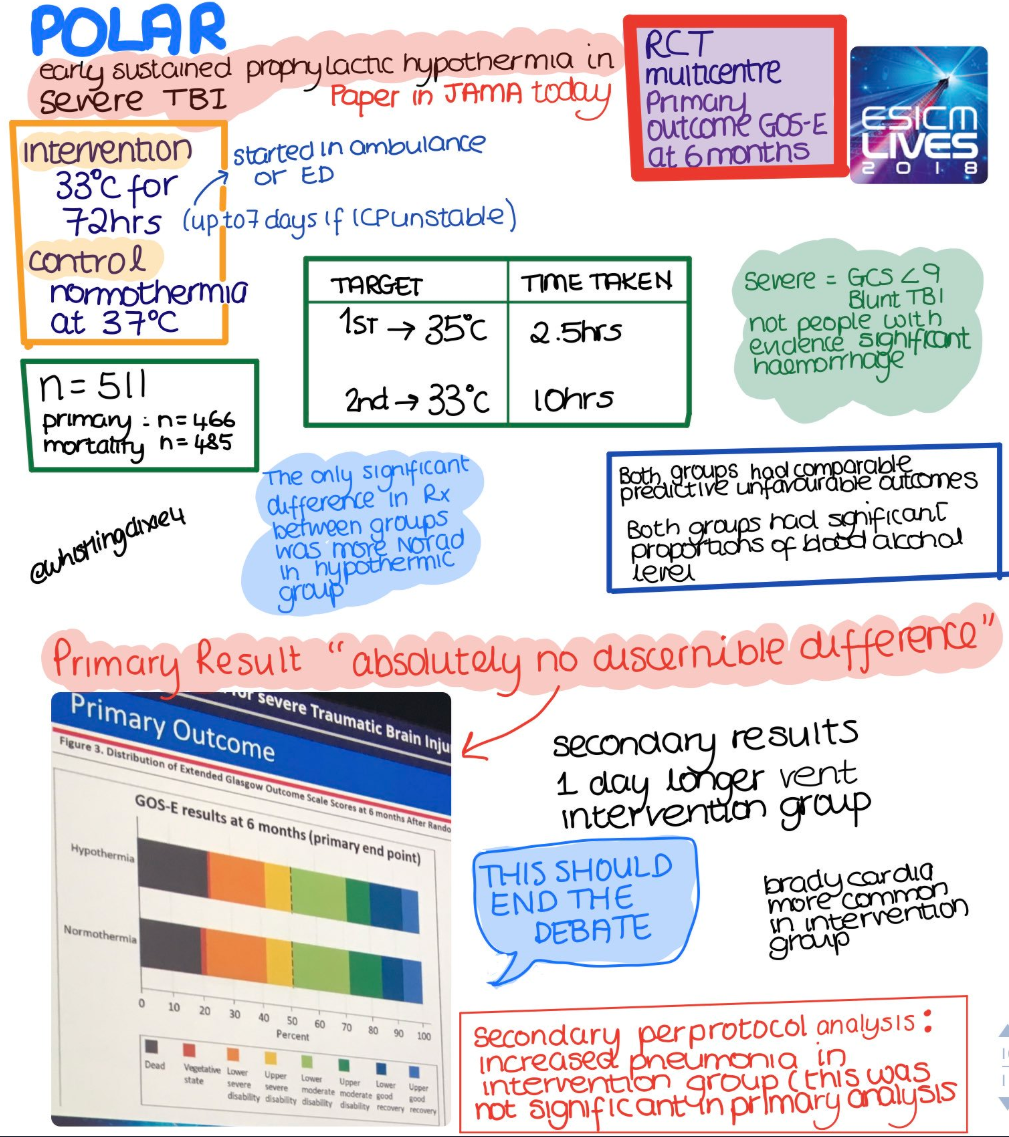 POLAR
early sustained prophylactic hypothermia in
severe TBI
Paper in JAMA today
RCT
multicentre
Primary
outcome GOS-E
at 6 months
ESICM
LIVES
2018
intervention
33°C for
72hrs
started in ambulance
or ED
(up to 7 days if ICP unstable)
control
normothermia
at 37°C
TARGET TIME TAKEN
1ST → 35°C 2.5hrs
2nd → 33°C 10hrs
severe = GCS <9
Blunt TBI
not people with
evidence significant
haemorrhage
n = 511
primary : n = 466
mortality n = 485
The only significant
difference in Rx
between groups
was more Norad
in hypothermic
group
Both groups had comparable
predictive unfavourable outcomes
Both groups had significant
proportions of blood alcohol
level
Primary Result "absolutely no discernible difference"
for severe Traumatic Brain Inju
Primary Outcome
Figure 3. Distribution of Extended Glasgow Outcome Scale Scores at 6 months After Rando
GOS-E results at 6 months (primary end point)
Hypothermia
Normothermia
0 10 20 30 40 50 60 70 80 90 100
Percent
Dead
Vegetative state
Lower severe disability
Upper severe disability
Lower moderate disability
Upper moderate disability
Lower good recovery
Upper good recovery
secondary results
1 day longer vent
intervention group
THIS SHOULD
END THE
DEBATE
bradycardia
more common
in intervention
group
secondary per protocol analysis :
increased pneumonia in
intervention group (this was
not significant in primary analysis